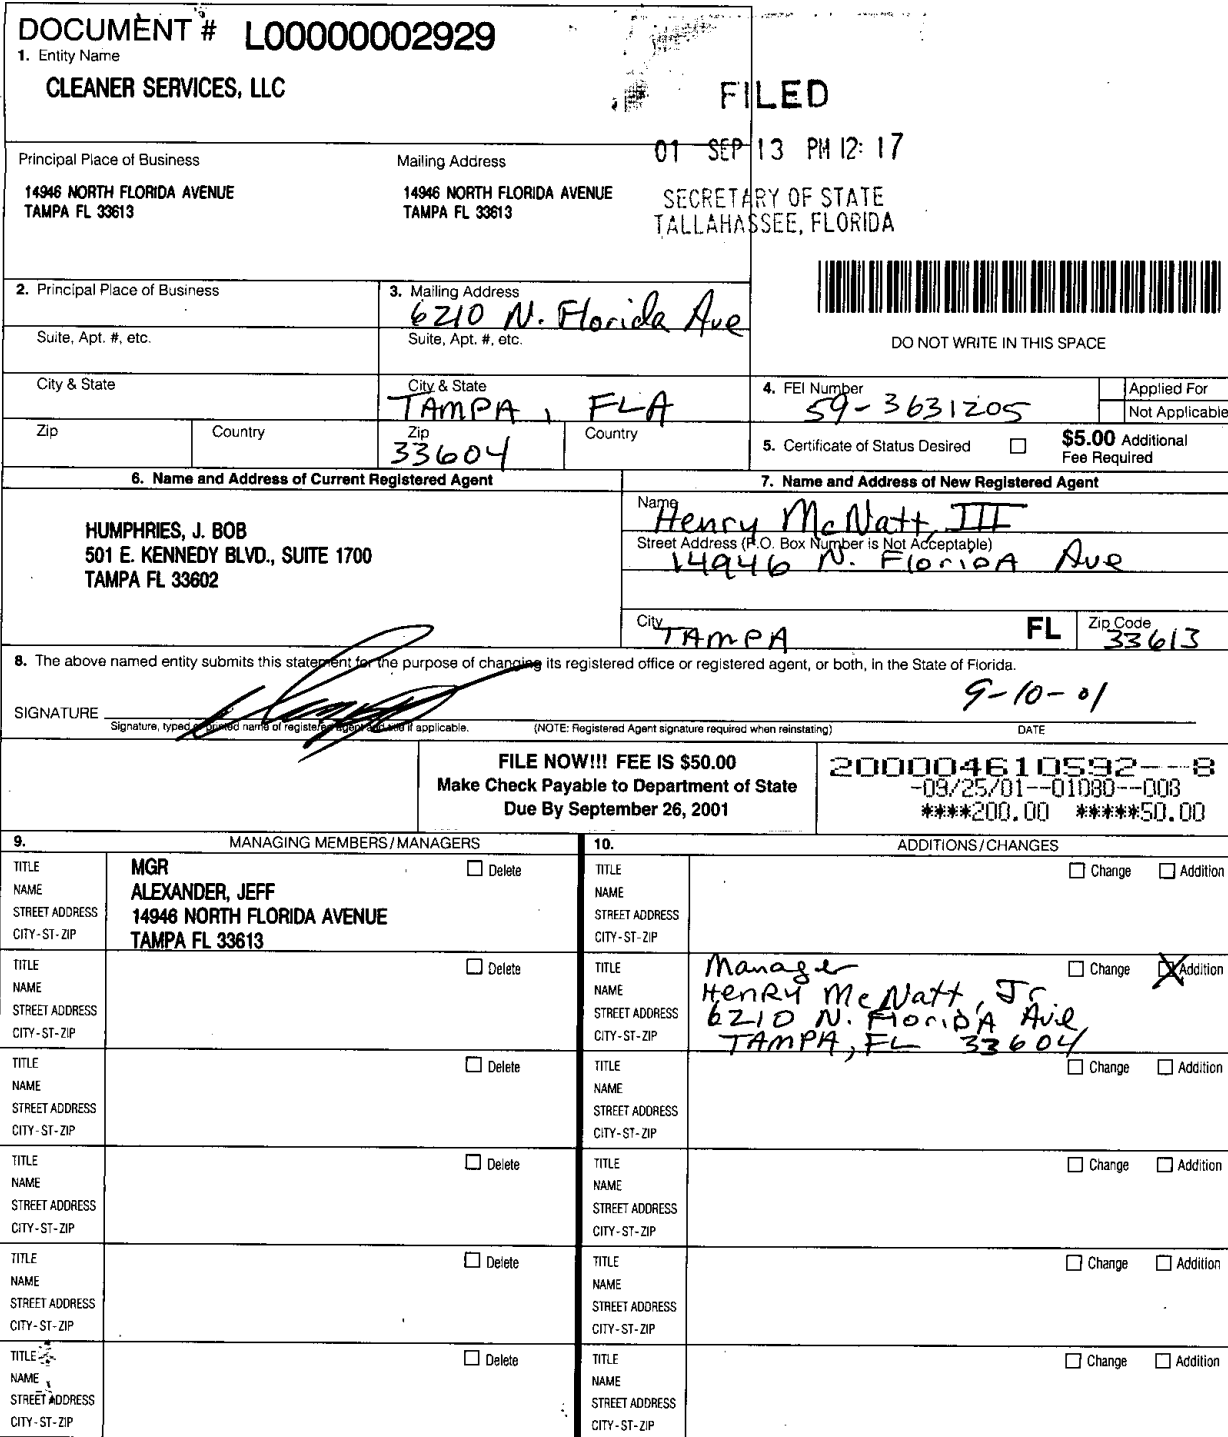 DOCUMENT # L00000002929
1. Entity Name
CLEANER SERVICES, LLC
FILED
01 SEP 13 PM 12: 17
SECRETARY OF STATE
TALLAHASSEE, FLORIDA
Principal Place of Business
14946 NORTH FLORIDA AVENUE
TAMPA FL 33613
Mailing Address
14946 NORTH FLORIDA AVENUE
TAMPA FL 33613
DO NOT WRITE IN THIS SPACE
2. Principal Place of Business
Suite, Apt. #, etc.
City & State
Zip Country
3. Mailing Address
6210 N. Florida Ave
Suite, Apt. #, etc.
City & State
TAMPA, FLA
Zip Country
33604
4. FEI Number
59-3631205
Applied For
Not Applicable
5. Certificate of Status Desired ☐ $5.00 Additional
Fee Required
6. Name and Address of Current Registered Agent
HUMPHRIES, J. BOB
501 E. KENNEDY BLVD., SUITE 1700
TAMPA FL 33602
7. Name and Address of New Registered Agent
Name
Henry McNatt, III
Street Address (P.O. Box Number is Not Acceptable)
14946 N. FloridA Ave
City FL Zip Code
TAMPA 33613
8. The above named entity submits this statement for the purpose of changing its registered office or registered agent, or both, in the State of Florida.
9-10-01
SIGNATURE
Signature, typed or printed name of registered agent and title if applicable. (NOTE: Registered Agent signature required when reinstating) DATE
FILE NOW!!! FEE IS $50.00
Make Check Payable to Department of State
Due By September 26, 2001
200004610592--8
-09/25/01--01080--003
****200.00 *****50.00
9. MANAGING MEMBERS/MANAGERS
TITLE MGR ☐ Delete
NAME ALEXANDER, JEFF
STREET ADDRESS 14946 NORTH FLORIDA AVENUE
CITY-ST-ZIP TAMPA FL 33613
TITLE ☐ Delete
NAME
STREET ADDRESS
CITY-ST-ZIP
TITLE ☐ Delete
NAME
STREET ADDRESS
CITY-ST-ZIP
TITLE ☐ Delete
NAME
STREET ADDRESS
CITY-ST-ZIP
TITLE ☐ Delete
NAME
STREET ADDRESS
CITY-ST-ZIP
TITLE ☐ Delete
NAME
STREET ADDRESS
CITY-ST-ZIP
10. ADDITIONS/CHANGES
TITLE ☐ Change ☐ Addition
NAME
STREET ADDRESS
CITY-ST-ZIP
TITLE Manager ☐ Change ☒ Addition
NAME HenRy McNatt, Jr
STREET ADDRESS 6210 N. FloridA Ave
CITY-ST-ZIP TAMPA, FL 33604
TITLE ☐ Change ☐ Addition
NAME
STREET ADDRESS
CITY-ST-ZIP
TITLE ☐ Change ☐ Addition
NAME
STREET ADDRESS
CITY-ST-ZIP
TITLE ☐ Change ☐ Addition
NAME
STREET ADDRESS
CITY-ST-ZIP
TITLE ☐ Change ☐ Addition
NAME
STREET ADDRESS
CITY-ST-ZIP